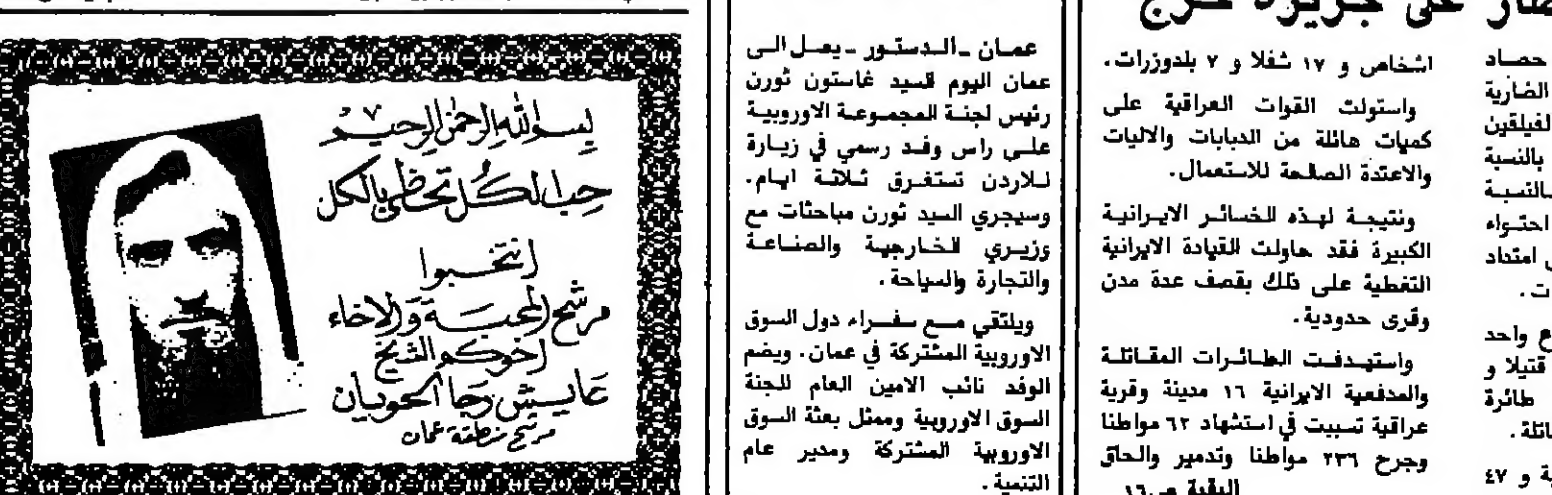 على جزيرة خرج
حصاد
الضارية
لفيلقين
بالنسبة
بالنسبة
احتواء
امتداد
ات.
ع واحد
قتيلا و
طائرة
ية و ٤٧
اشخاص و ١٧ شفلا و ٧ بلدوزرات.
واستولت القوات العراقية على
كميات هائلة من الدبابات والاليات
والاعتدة الصالحة للاستعمال.
ونتيجة لهذه الخسائر الايرانية
الكبيرة فقد حاولت القيادة الايرانية
التغطية على ذلك بقصف عدة مدن
وقرى حدودية.
واستهدفت الطائرات المقاتلة
والمدفعية الايرانية ١٦ مدينة وقرية
عراقية تسببت في استشهاد ٦٢ مواطنا
وجرح ٢٣٦ مواطنا وتدمير والحاق
البقية ص١٦
عمان ـ الدستور ـ يصل الى
عمان اليوم السيد غاستون ثورن
رئيس لجنة المجموعة الاوروبية
على راس وفد رسمي في زيارة
للاردن تستغرق ثلاثة ايام.
وسيجري السيد ثورن مباحثات مع
وزيري الخارجية والصناعة
والتجارة والسياحة.
ويلتقي مع سفراء دول السوق
الاوروبية المشتركة في عمان. ويضم
الوفد نائب الامين العام للجنة
السوق الاوروبية وممثل بعثة السوق
الاوروبية المشتركة ومدير عام
التنمية.
بسم الله الرحمن الرحيم
حب الكل تحظى بالكل
انتخبوا
مرشح المحبة والاخاء
اخوكم الشيخ
عايش رجا الحويان
مرشح منطقة عمان